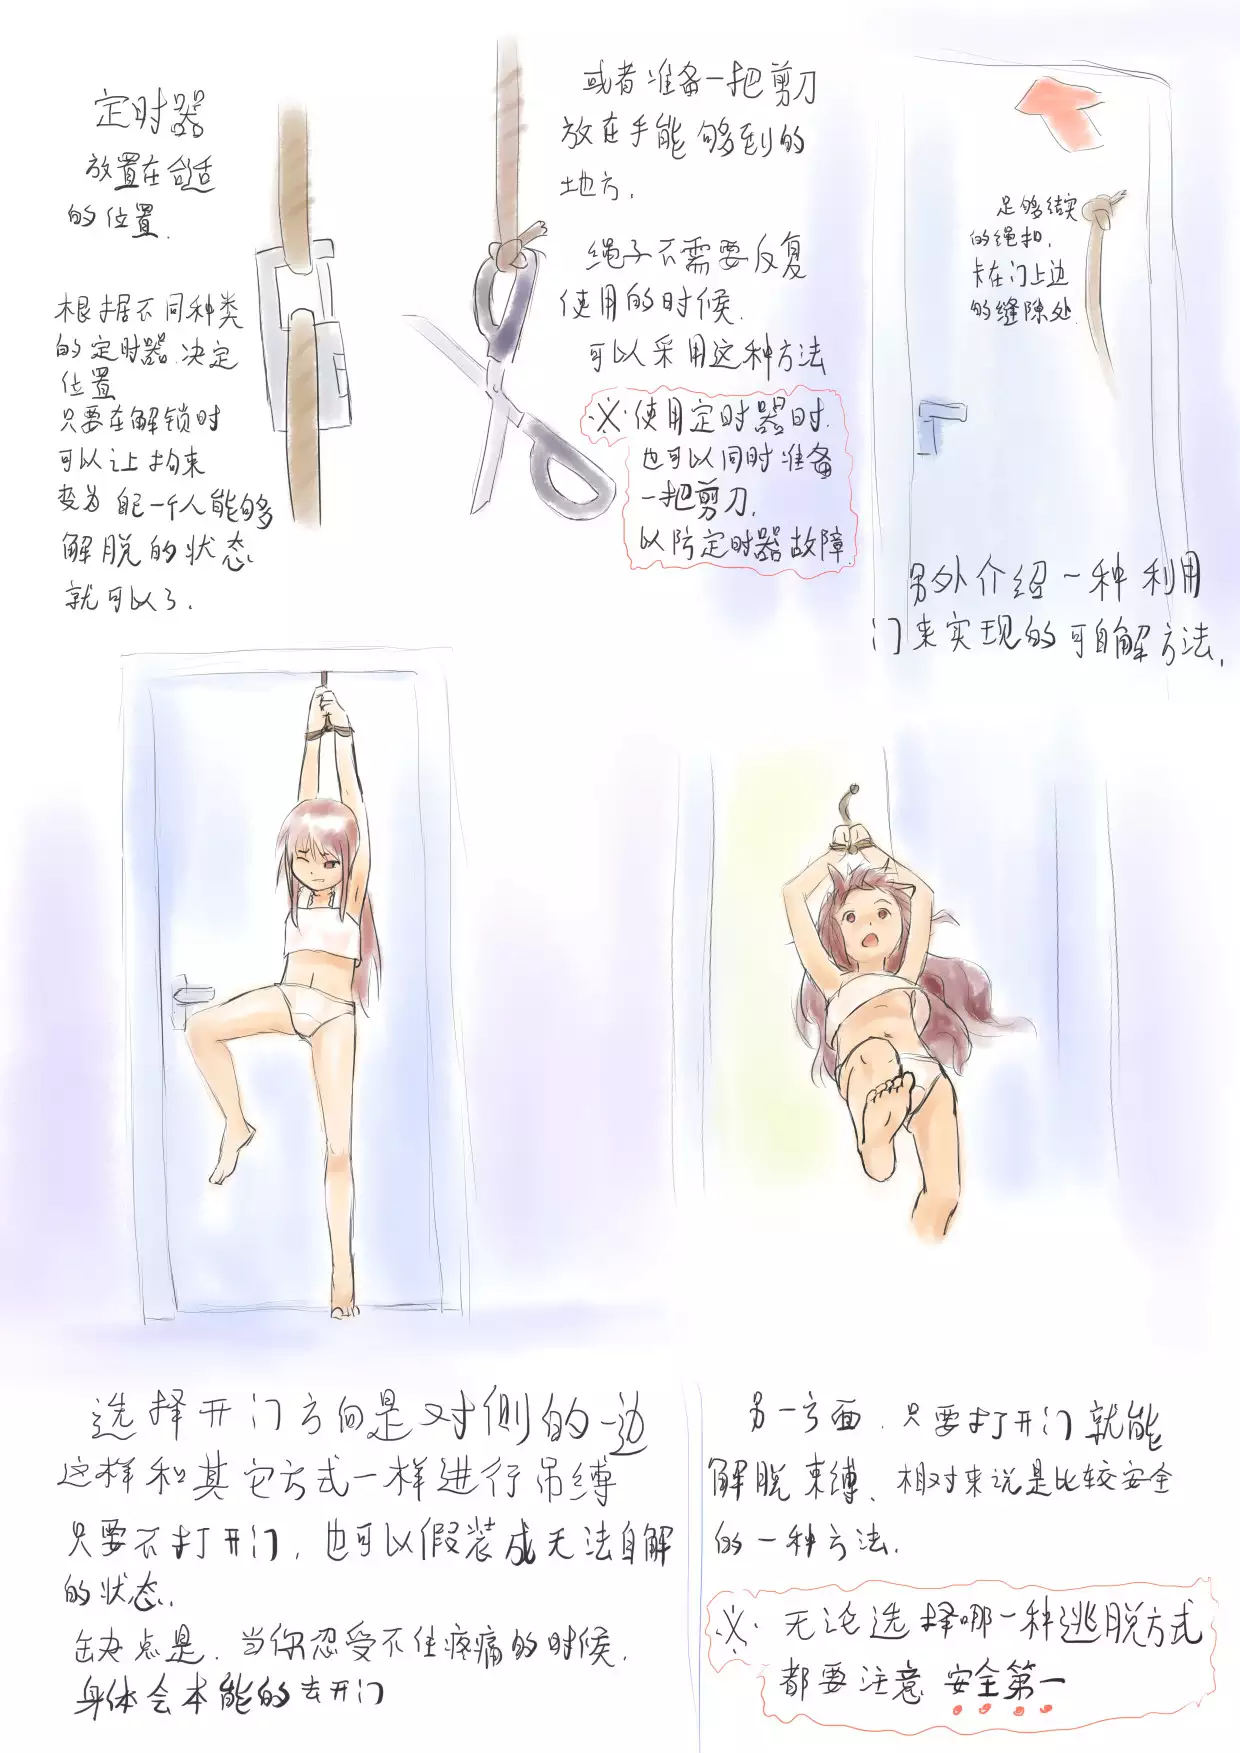 定时器
放置在合适
的位置.
根据不同种类
的定时器.决定
位置
只要在解锁时
可以让拘束
变为自己一个人能够
解脱的状态
就可以了.
或者准备一把剪刀
放在手能够到的
地方.
绳子不需要反复
使用的时候.
可以采用这种方法
※使用定时器时.
也可以同时准备
一把剪刀.
以防定时器故障
足够结实
的绳扣.
卡在门上边
的缝隙处.
另外介绍一种利用
门来实现的可自解方法.
选择开门方向是对侧的一边
这样和其它方式一样进行吊缚
只要不打开门,也可以假装成无法自解
的状态.
缺点是.当你忍受不住疼痛的时候.
身体会本能的去开门
另一方面.只要打开门就能
解脱束缚、相对来说是比较安全
的一种方法.
※.无论选择哪一种逃脱方式
都要注意 安全第一